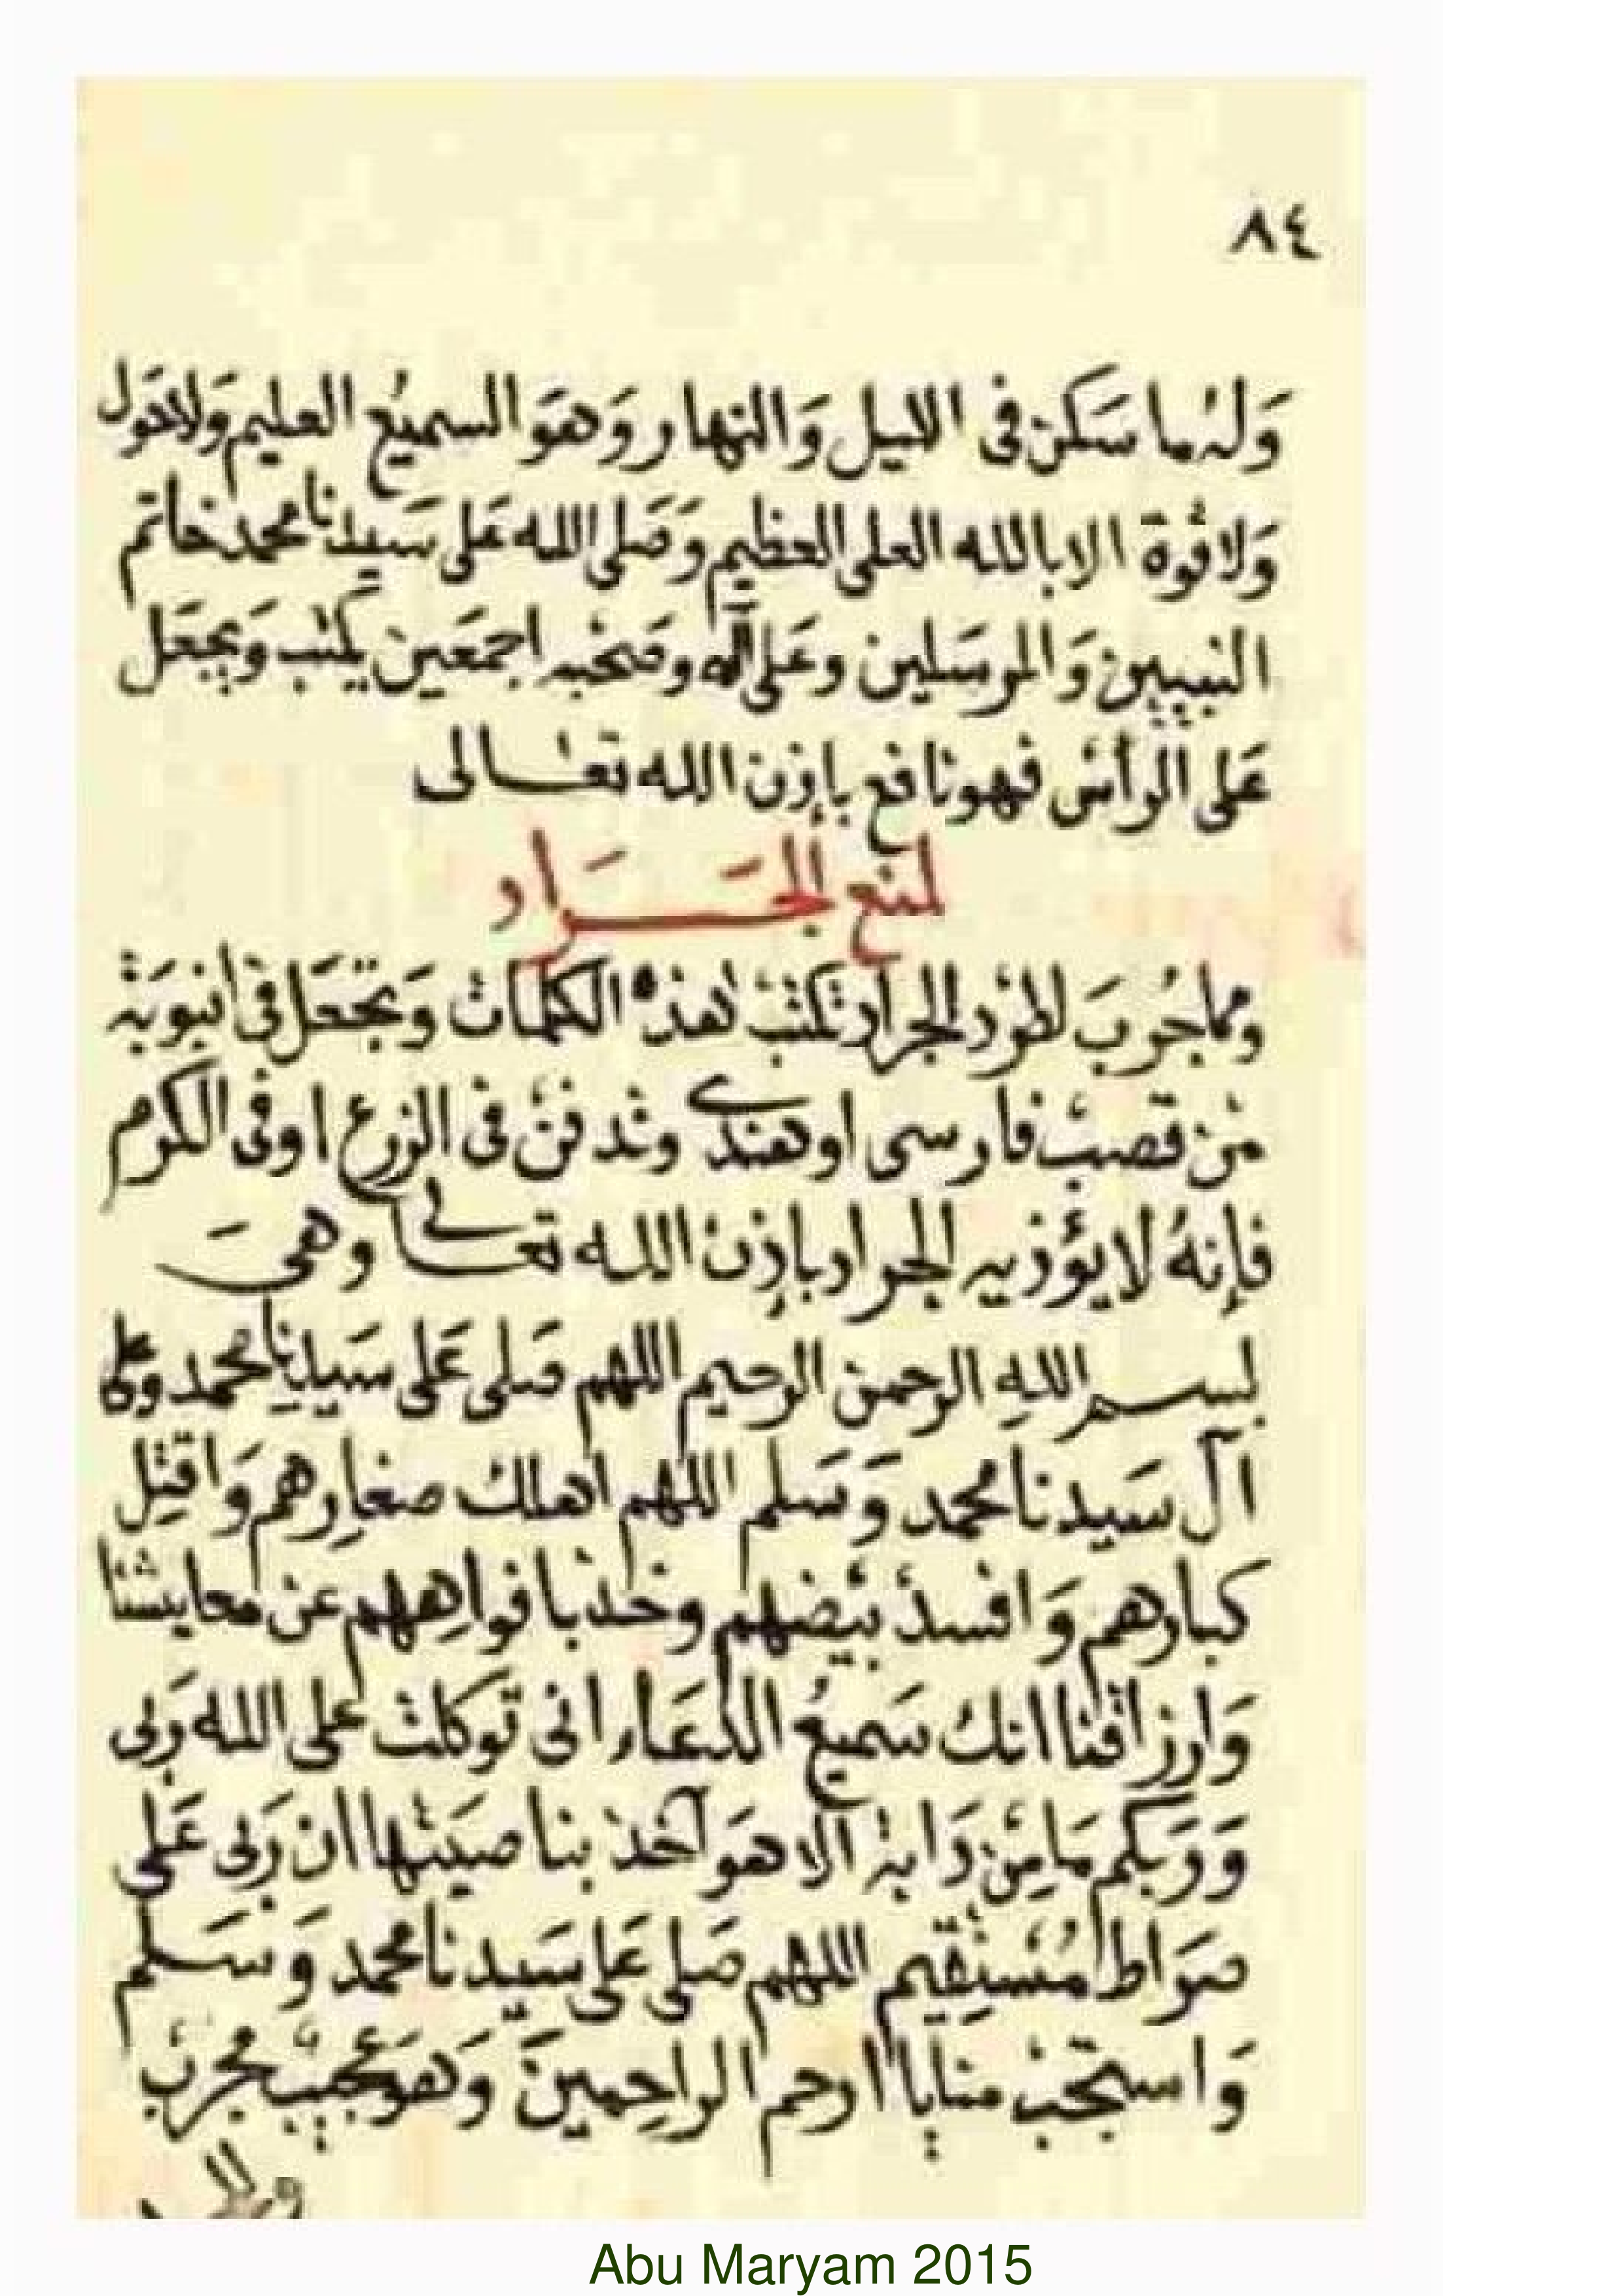 ٨٤
وَلَهُ مَا سَكَنَ فى الليل وَالنهار وَهوَ السميعُ العليم وَلاحَول
وَلا قوة الا بالله العلى العظيم وَصَلى الله عَلى سَيدنا محمد خاتم
النبيين وَالمرسَلين وعَلى آله وصَحْبه اجمَعين يكتب وَيجعَل
عَلى الرأسْ فهو نافع بإذن الله تعَالى
لمنع الجَرَاد
ومما جُرِبَ لطرد الجراد تكتبْ هٰذه الكلمات وَتجْعَل فى أنبوبَة
منْ قصبْ فارسى او هندى وتدفنْ فى الزرع اوفى الكرم
فإنهُ لا يؤذيه الجراد بإذنْ الله تعَالى وهىَ
بسم اللهِ الرحمن الرحيم اللهم صَلى عَلى سَيدنا محمد وعلى
آل سَيدنا محمد وَسَلم اللهم اهلك صغارِهم وَاقتِل
كبارهم وَافسدْ بيْضهم وخذْ بافواهِهم عن معايشنا
وَارزاقنا انك سَميعُ الدعَاء انى توكلت على الله رَبى
وَرَبكم مَا مِنْ دَابة الا هوَ آخذ بناصيَتها ان رَبى عَلى
صرَاط مُسْتقِيم اللهم صَلى عَلى سَيدنا محمد وَسَلم
وَاستجبْ منا يا ارحم الراحِمينَ وَهوَ عَجيبْ مجربْ
Abu Maryam 2015